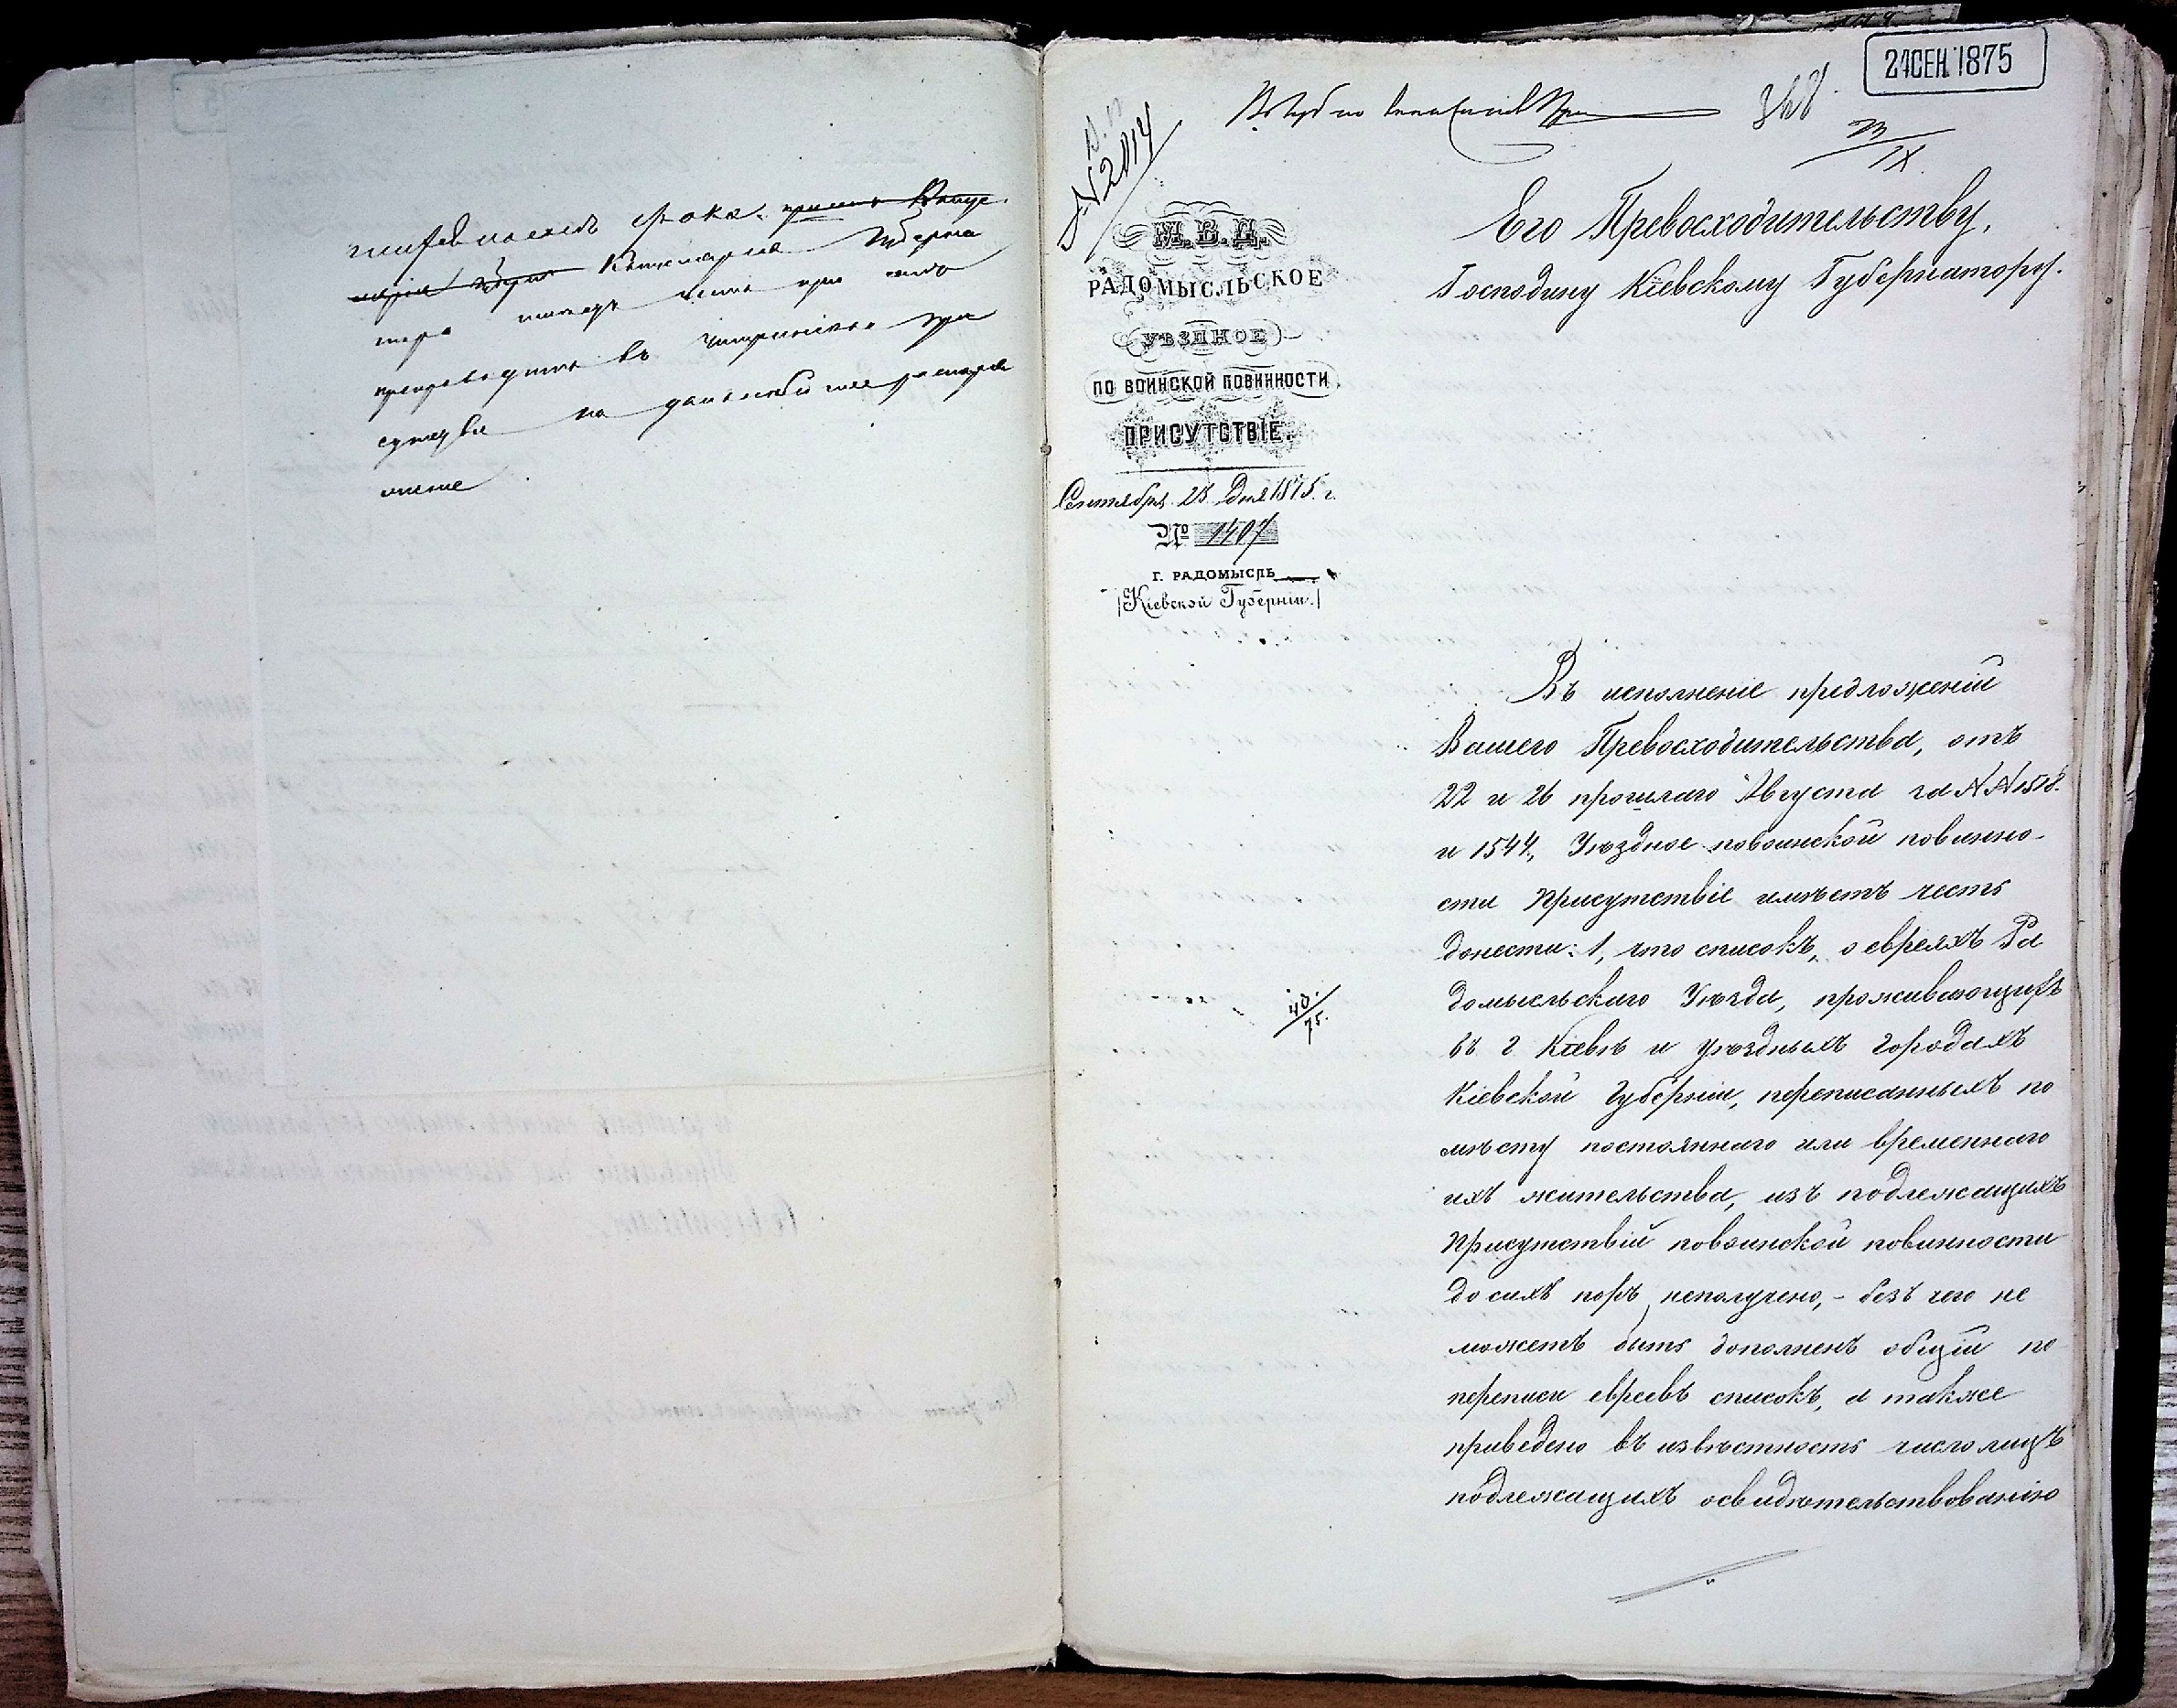 срока.
Канцелярия Губерна
тора
при
препроводить въ
на дальнѣйшее
24 СЕН. 1875
№ 2014
IX
М. В. Д.
РАДОМЫСЛЬСКОЕ
УѢЗДНОЕ
ПО ВОИНСКОЙ ПОВИННОСТИ
ПРИСУТСТВІЕ.
Сентября 23 дня 1875 г.
№ 1407
Г. РАДОМЫСЛЬ
(Кіевской Губерніи.)
Его Превосходительству,
Господину Кіевскому Губернатору.
Въ исполненіе предложеній
Вашего Превосходительства, отъ
22 и 26 прошлаго Августа за №№ 1518
и 1544, Уѣздное повоинской повинно-
сти Присутствіе имѣетъ честь
донести: 1, что списокъ, о евреяхъ Ра
домысльскаго Уѣзда, проживающихъ
въ г Кіевѣ и уѣздныхъ городахъ
Кіевской Губерніи, переписанныхъ по
мѣсту постояннаго или временнаго
ихъ жительства, изъ подлежащихъ
Присутствій повоинской повинности
до сихъ поръ неполучено, - безъ чего не
можетъ быть дополненъ общій по
переписи евреевъ списокъ, а также
приведено въ извѣстность число лицъ
подлежащихъ освидѣтельствованію
40/75.